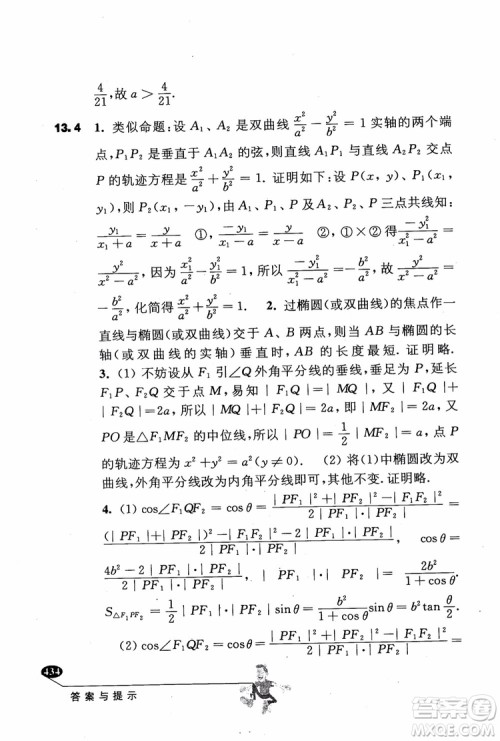 4/21,故 a > 4/21.
13.4 1. 类似命题:设 A₁、A₂ 是双曲线 x²/a² − y²/b² = 1 实轴的两个端
点,P₁P₂ 是垂直于 A₁A₂ 的弦,则直线 A₁P₁ 与 A₂P₂ 交点
P 的轨迹方程是 x²/a² + y²/b² = 1. 证明如下:设 P(x, y)、P₁(x₁,
y₁),则 P₂(x₁, −y₁),由 A₁、P₁、P 和 A₂、P₂、P 三点共线知:
y₁/(x₁ + a) = y/(x + a) ①, −y₁/(x₁ − a) = y/(x − a) ②,①×②得 −y₁²/(x₁² − a²) =
y²/(x² − a²),因为 x₁²/a² − y₁²/b² = 1,所以 y₁²/(x₁² − a²) = b²/a²,所以 y²/(x² − a²) =
−b²/a²,化简得 x²/a² + y²/b² = 1. 2. 过椭圆(或双曲线)的焦点作一
直线与椭圆(或双曲线)交于 A、B 两点,则当 AB 与椭圆的长
轴(或双曲线的实轴)垂直时,AB 的长度最短. 证明略.
3. (1) 不妨设从 F₁ 引∠Q 外角平分线的垂线,垂足为 P,延长
F₁P、F₂Q 交于点 M,易知 | MQ | = | F₁Q |,又 | F₁Q | +
| F₂Q | = 2a,所以 | MQ | + | F₂Q | = | MF₂ | = 2a,又
PO 是△F₁MF₂ 的中位线,所以 | PO | = 1/2 | MF₂ | = a,故 P
的轨迹方程为 x² + y² = a²(y ≠ 0). (2) 将(1)中椭圆改为双
曲线,外角平分线改为内角平分线即可,其他不变. 证明略.
4. (1) cos∠F₁QF₂ = cosθ = (| PF₁ |² + | PF₂ |² − 4c²)/(2 | PF₁ | · | PF₂ |) =
((| PF₁ | + | PF₂ |)² − 2 | PF₁ | · | PF₂ | − 4c²)/(2 | PF₁ | · | PF₂ |) =
(4b² − 2 | PF₁ | · | PF₂ |)/(2 | PF₁ | · | PF₂ |),故 | PF₁ | · | PF₂ | = 2b²/(1 + cosθ),
S△F₁PF₂ = 1/2 | PF₁ | · | PF₂ | sinθ = b²/(1 + cosθ) sinθ = b²tan θ/2.
(2) cos∠F₁QF₂ = cosθ = (| PF₁ |² + | PF₂ |² − 4c²)/(2 | PF₁ | · | PF₂ |) =
434
答案与提示